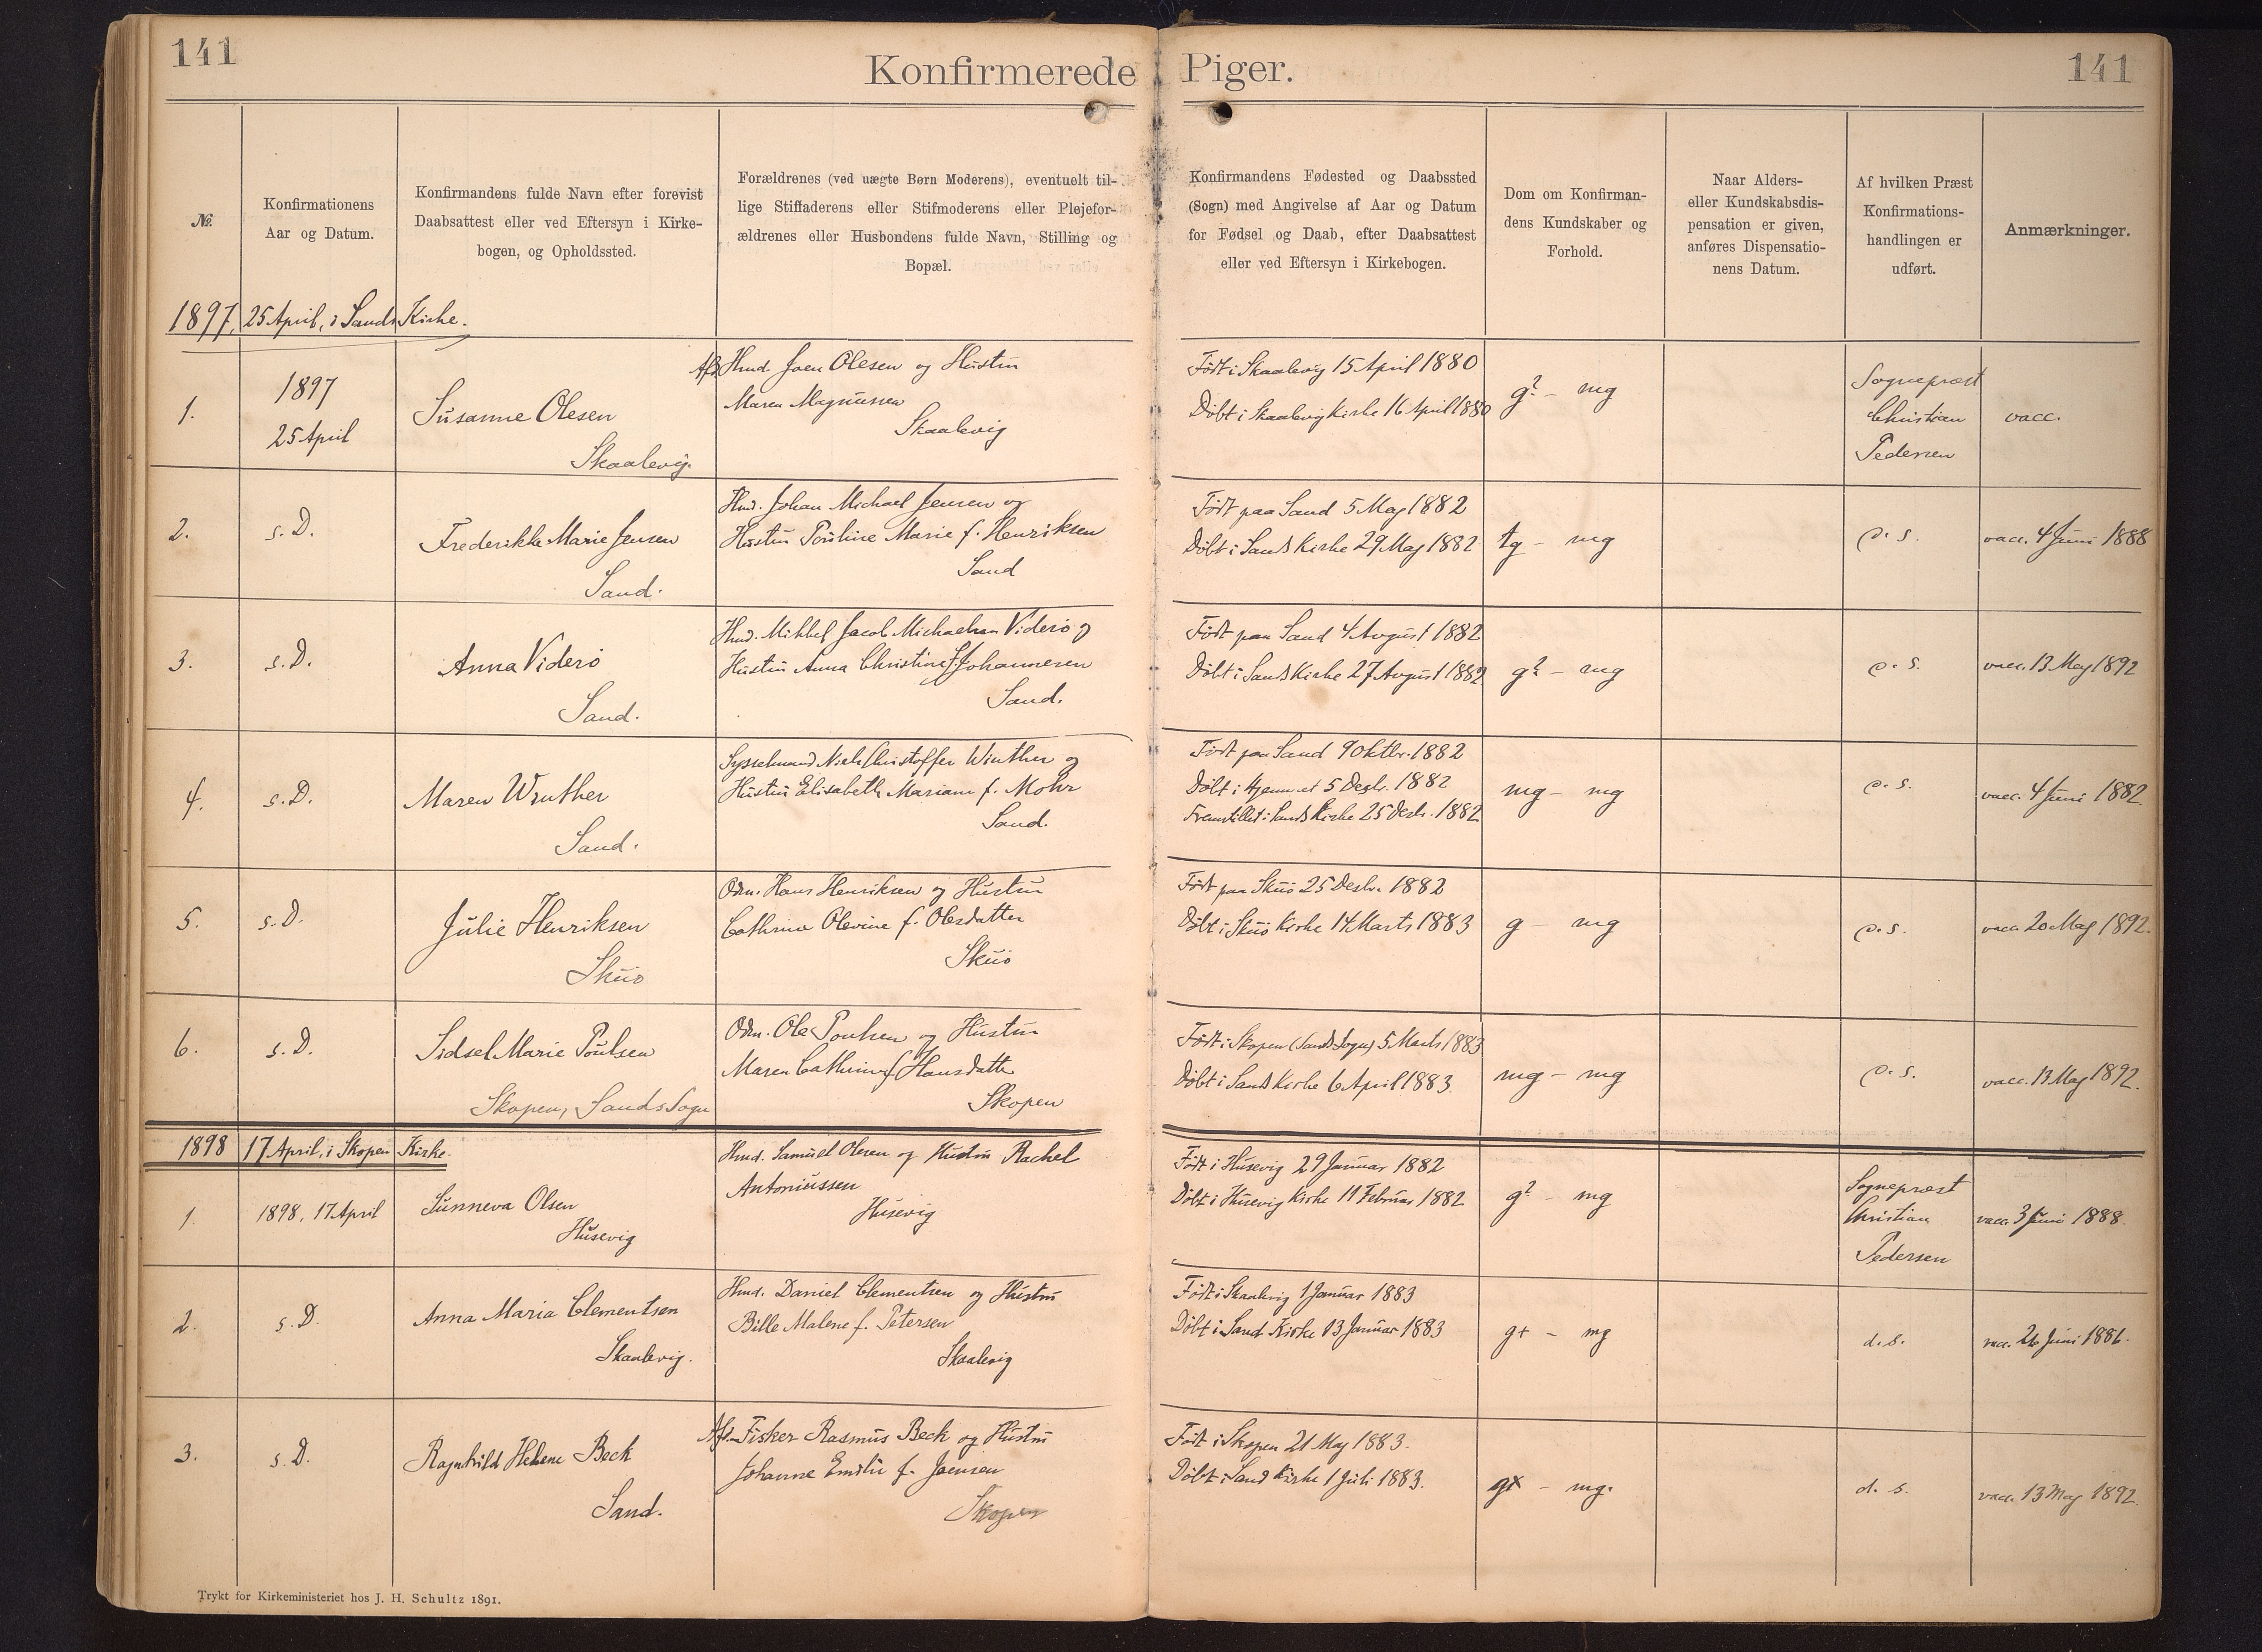 141
Konfirmerede Piger.
141
№.
Konfirmationens
Aar og Datum.
Konfirmandens fulde Navn efter forevist
Daabsattest eller ved Eftersyn i Kirke-
bogen, og Opholdssted.
Forældrenes (ved uægte Børn Moderens), eventuelt til-
lige Stiffaderens eller Stifmoderens eller Plejefor-
ældrenes eller Husbondens fulde Navn, Stilling og
Bopæl.
Konfirmandens Fødested og Daabssted
(Sogn) med Angivelse af Aar og Datum
for Fødsel og Daab, efter Daabsattest
eller ved Eftersyn i Kirkebogen.
Dom om Konfirman-
dens Kundskaber og
Forhold.
Naar Alders-
eller Kundskabsdis-
pensation er given,
anføres Dispensatio-
nens Datum.
Af hvilken Præst
Konfirmations-
handlingen er
udført.
Anmærkninger.
1897, 25 April, i Sands Kirke.
1.
1897
25 April
Susanne Olesen
Skaalevig.
Afd. Hmd. Joen Olesen og Hustru
Maren Magnussen
Skaalevig
Født i Skaalevig 15 April 1880
Döbt i Skaalevig Kirke 16 April 1880
g? - mg
Sognepræst
Christian
Pedersen
vacc.
2.
s. D.
Frederikke Marie Jensen
Sand.
Hmd. Johan Michael Jensen og
Hustru Pouline Marie f. Henriksen
Sand
Født paa Sand 5 Maj 1882
Döbt i Sands Kirke 29 Maj 1882
tg - mg
d. s.
vacc. 4 Juni 1888
3.
s. D.
Anna Viderö
Sand.
Hmd. Mikkel Jacob Michaelsen Viderö og
Hustru Anna Christine f. Johannesen
Sand.
Født paa Sand 4 August 1882
Döbt i Sands Kirke 27 August 1882
g? - mg
d. s.
vacc. 13 Maj 1892
4.
s. D.
Maren Winther
Sand.
Sysselmand Niels Christoffer Winther og
Hustru Elisabeth Mariane f. Mohr
Sand.
Født paa Sand 9 Oktbr. 1882
Döbt i Hjemmet 5 Desbr. 1882
Fremstillet i Sands Kirke 25 Desbr. 1882
mg - mg
d. s.
vacc. 4 Juni 1882.
5.
s. D.
Julie Henriksen
Skuö
Odm. Hans Henriksen og Hustru
Cathrine Olevine f. Olesdatter
Skuö
Født paa Skuö 25 Desbr. 1882
Döbt i Skuö Kirke 14 Marts 1883
g - mg
d. s.
vacc. 20 Maj 1892.
6.
s. D.
Sidsel Marie Poulsen
Skopen, Sands Sogn
Odm. Ole Poulsen og Hustru
Maren Cathrine f. Hansdatter
Skopen
Født i Skopen (Sands Sogn) 5 Marts 1883
Döbt i Sands Kirke 6 April 1883.
mg - mg
d. s.
vacc. 13 Maj 1892.
1898 17 April, i Skopen Kirke.
1.
1898, 17 April
Sunneva Olsen
Husevig
Hmd. Samuel Olesen og Hustru Rachel
Antoniussen
Husevig
Født i Husevig 29 Januar 1882
Döbt i Husevig Kirke 11 Februar 1882
g? - mg
Sognepræst
Christian
Pedersen
vacc. 3 Juni 1888.
2.
s. D.
Anna Maria Clementsen
Skaalevig.
Hmd. Daniel Clementsen og Hustru
Bille Malene f. Petersen
Skaalevig
Født i Skaalevig 1 Januar 1883
Döbt i Sand Kirke 13 Januar 1883
g+ - mg
d. s.
vacc. 26 Juni 1886.
3.
s. D.
Ragnhild Helene Beck
Sand.
Afd. Fisker Rasmus Beck og Hustru
Johanne Emilie f. Joensen
Skopen
Født i Skopen 21 Maj 1883.
Döbt i Sand Kirke 1 Juli 1883.
g+ - mg.
d. s.
vacc. 13 Maj 1892.
Trykt for Kirkeministeriet hos J. H. Schultz 1891.